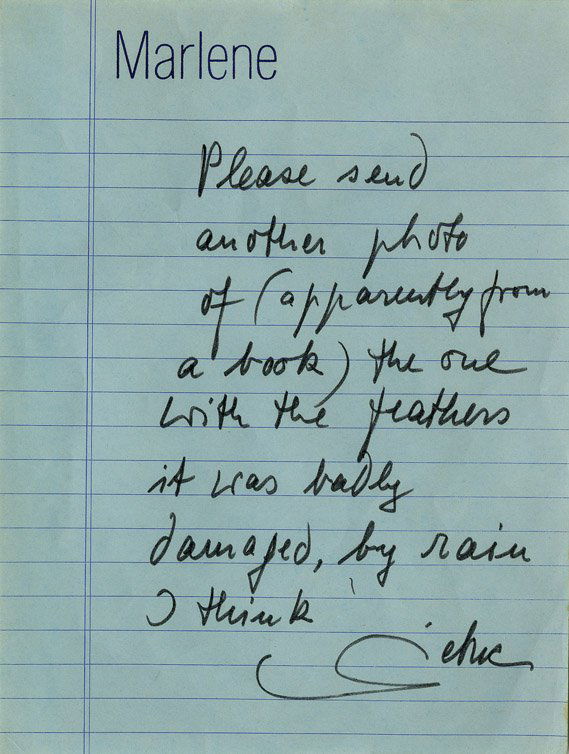 Marlene
Please send
another photo
of (apparently from
a book) the one
with the feathers
it was badly
damaged, by rain
I think